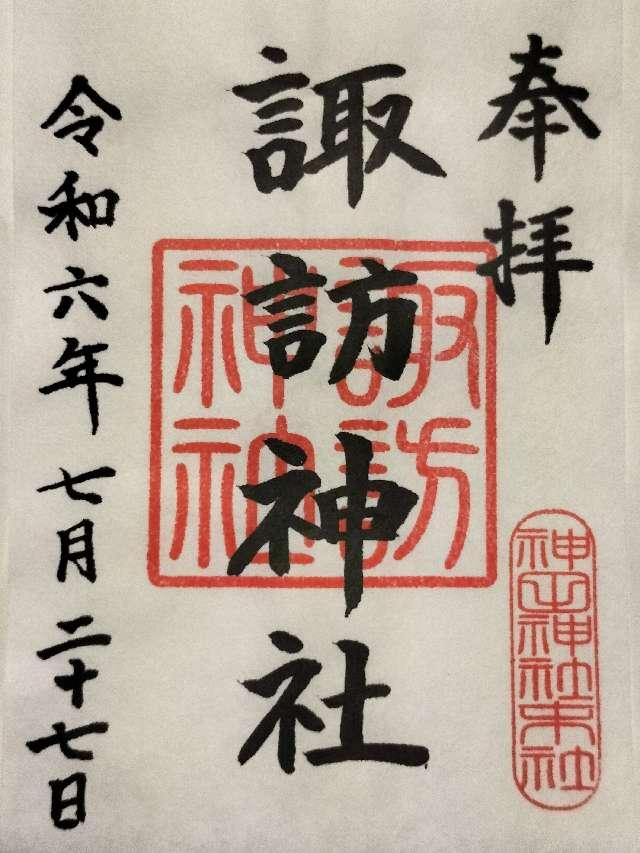 奉拝
諏訪神社
諏訪
神社
神山神社末社
令和六年七月二十七日